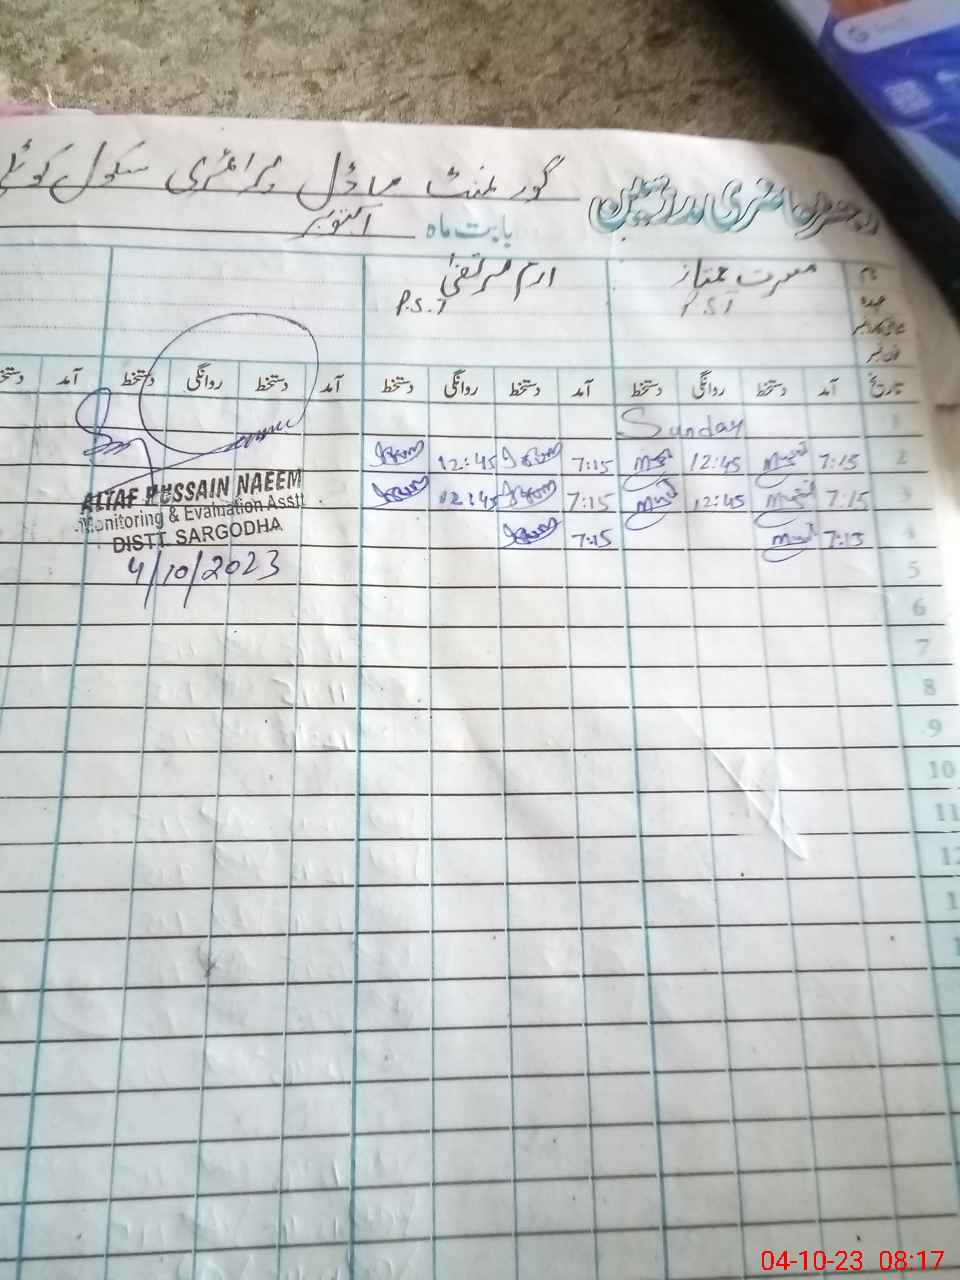 رجسٹر حاضری مدرسین گورنمنٹ ماڈل پرائمری سکول
بابت ماہ اکتوبر
نام مسرت ممتاز ارم مرتضیٰ
عہدہ P.S.T P.S.T
فون نمبر
تاریخ آمد دستخط روانگی دستخط آمد دستخط روانگی دستخط آمد دستخط روانگی دستخط آمد
1 Sunday
2 7:15 12:45 7:15 Irum 12:45 Irum
3 7:15 12:45 7:15 Irum 12:45 Irum
4 7:15 7:15 Irum
ALTAF HUSSAIN NAEEM
Monitoring & Evaluation Asstt
DISTT. SARGODHA
4/10/2023
5
6
7
8
9
10
11
04-10-23 08:17